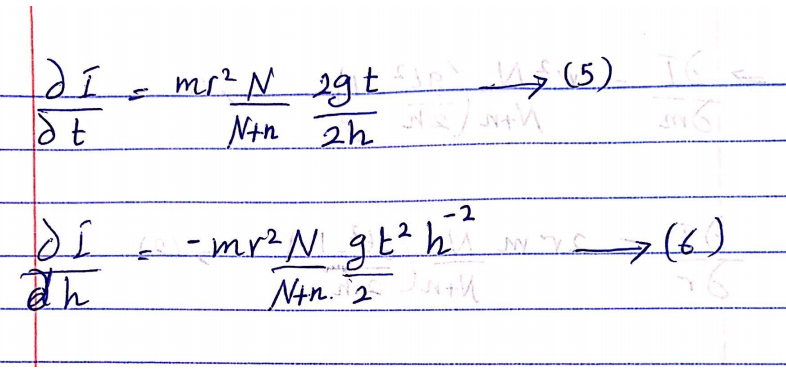 ∂I/∂t = mr² N/(N+n) 2gt/2h → (5)
∂I/∂h = -mr² N/(N+n). gt²/2 h⁻² → (6)